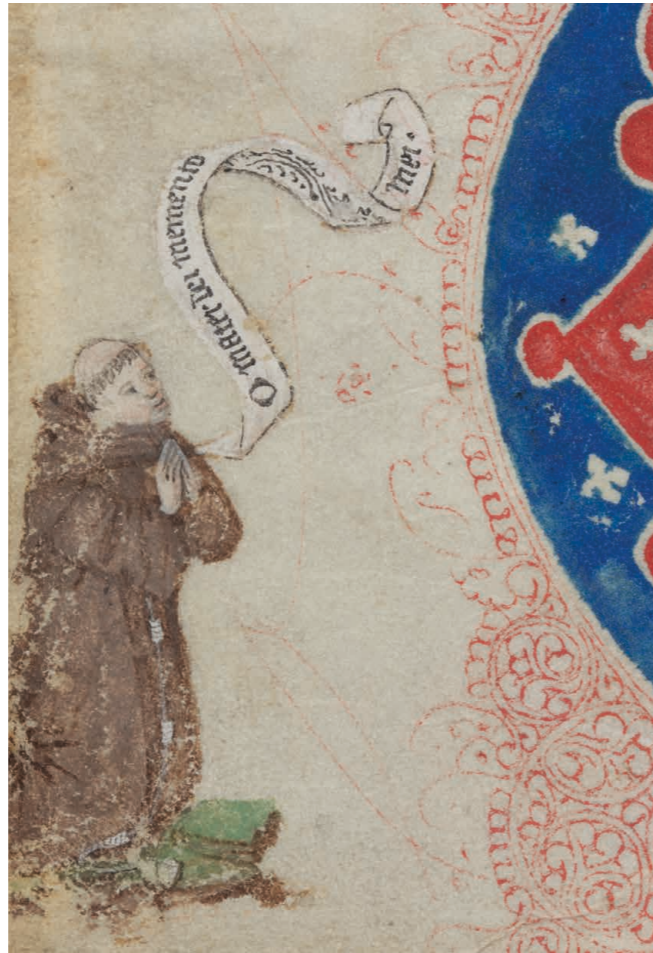 O mater dei memento
mei.